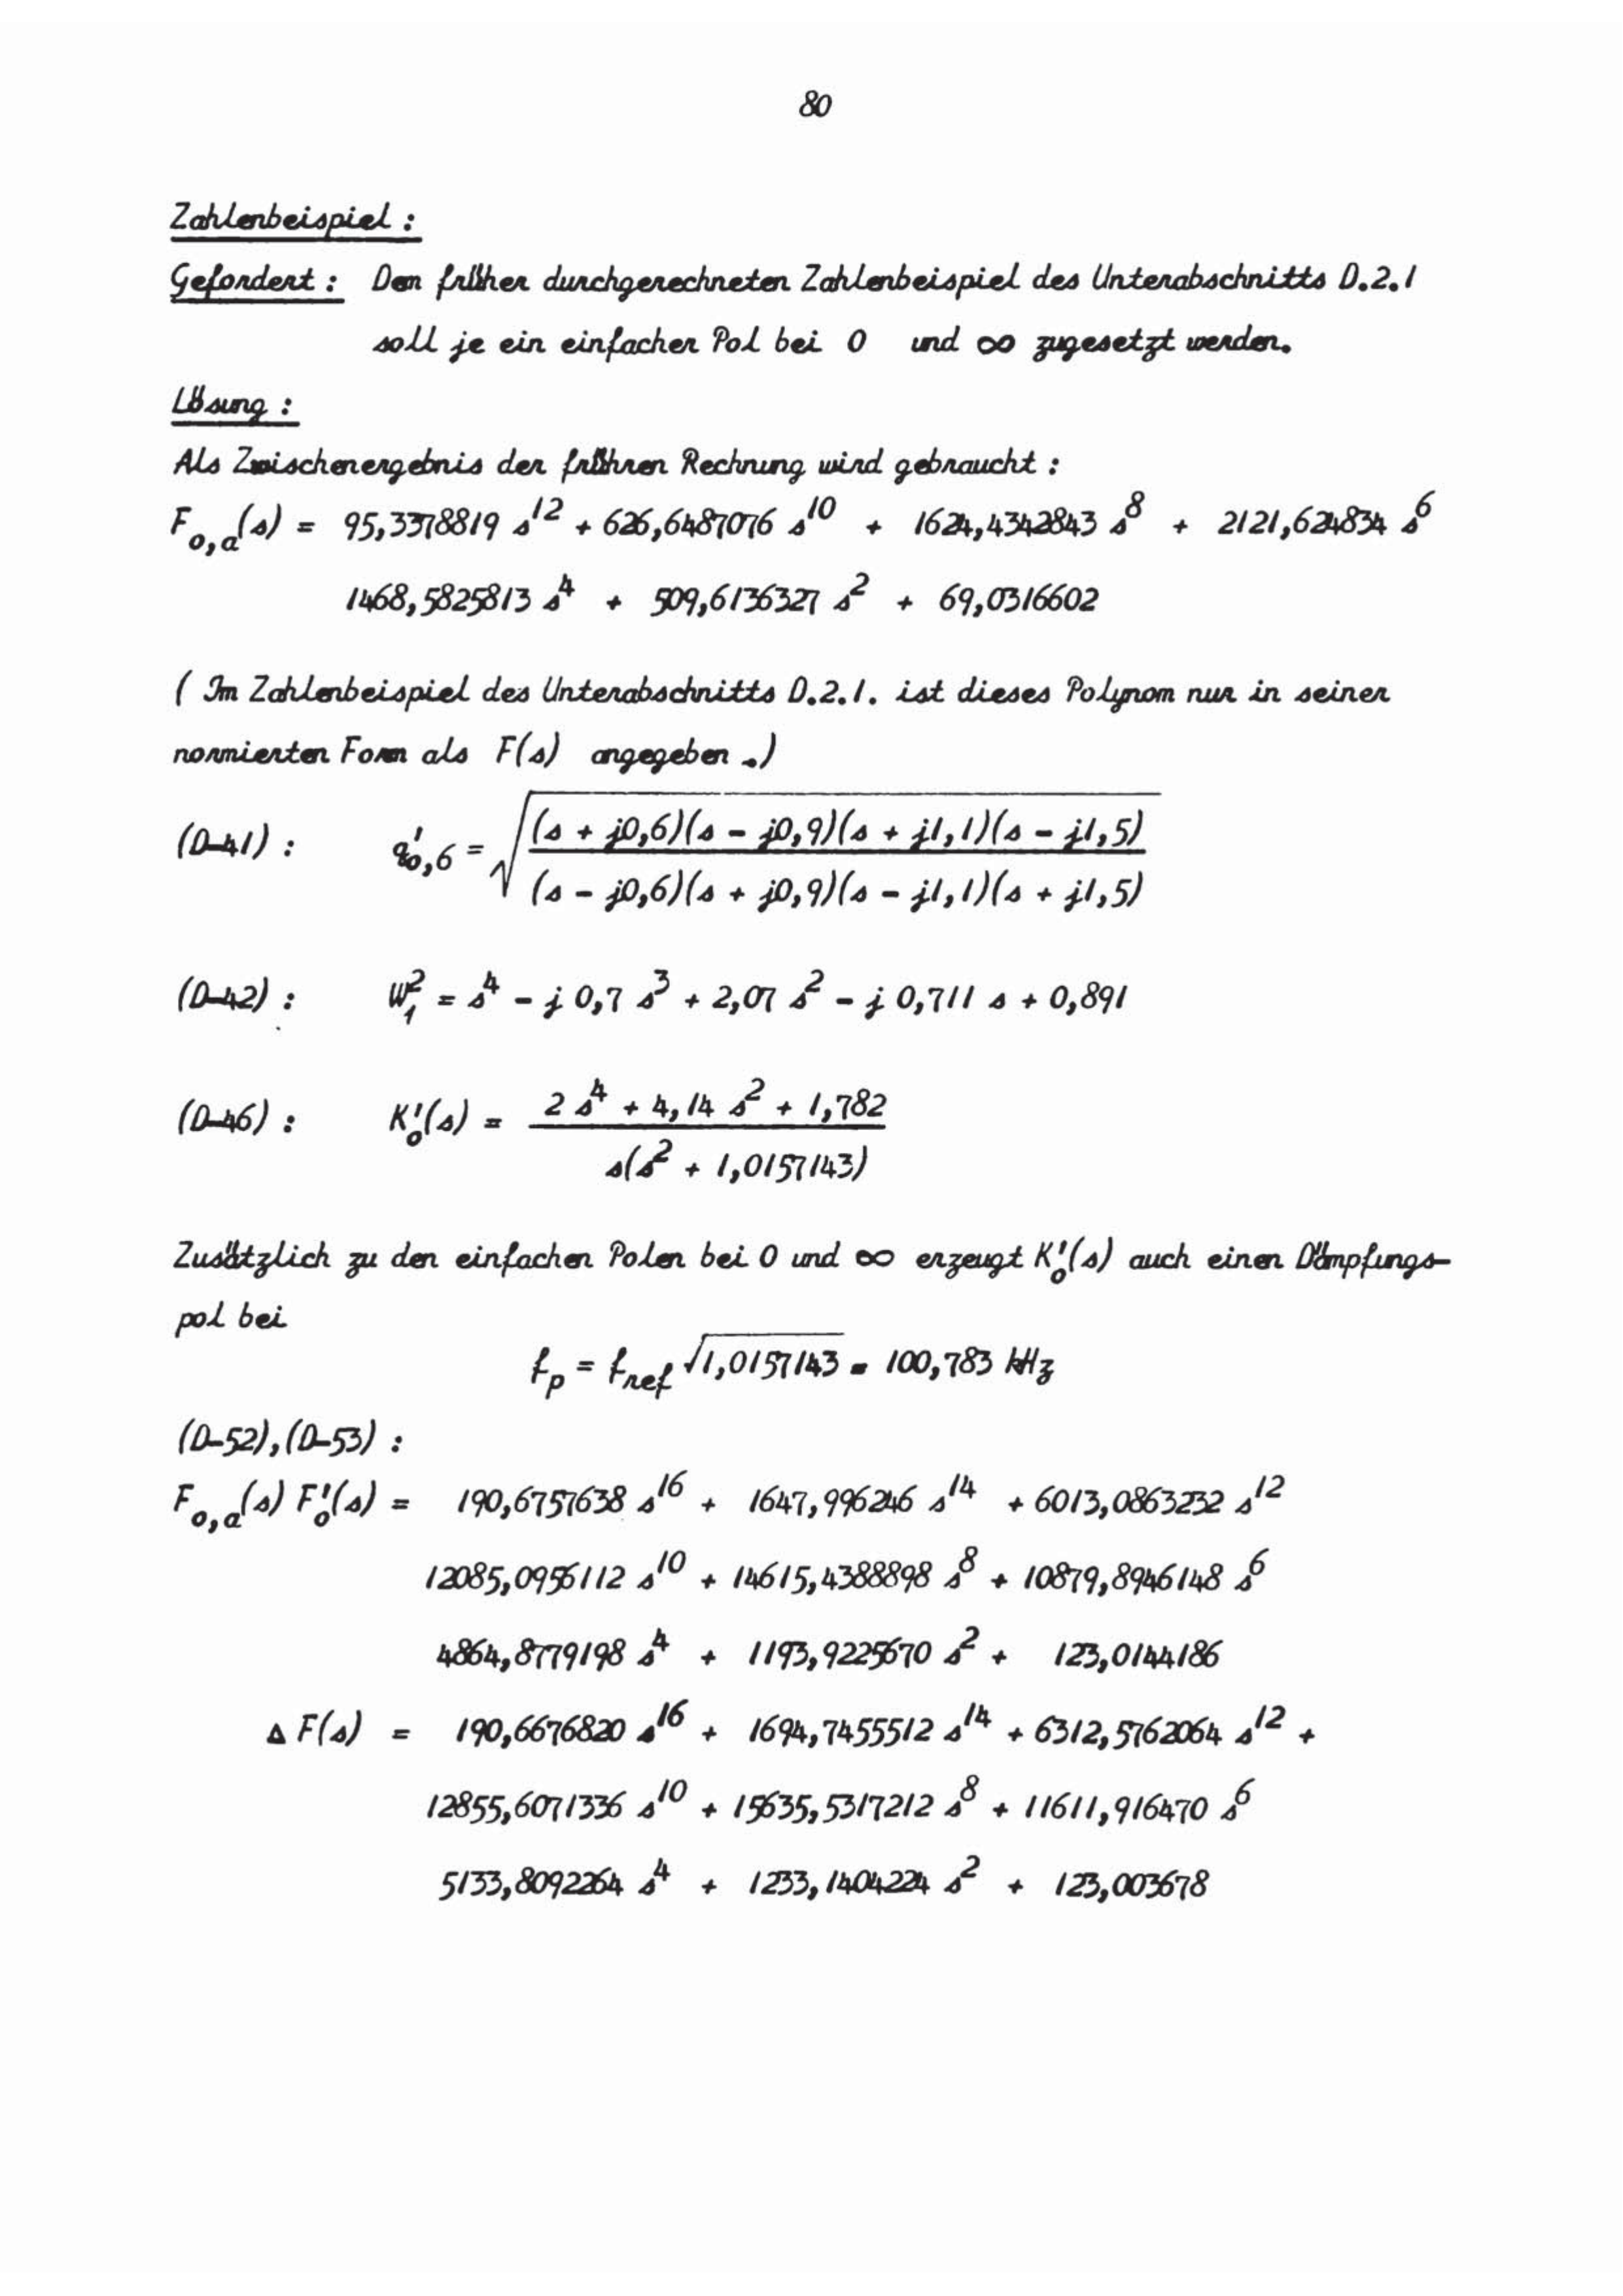 80
Zahlenbeispiel :
Gefordert : Dem früher durchgerechneten Zahlenbeispiel des Unterabschnitts D.2.1
soll je ein einfacher Pol bei 0 und ∞ zugesetzt werden.
Lösung :
Als Zwischenergebnis der frühren Rechnung wird gebraucht :
F₀,ₐ(s) = 95,3378819 s¹² + 626,6487076 s¹⁰ + 1624,4342843 s⁸ + 2121,624834 s⁶
1468,5825813 s⁴ + 509,6136327 s² + 69,0316602
( Im Zahlenbeispiel des Unterabschnitts D.2.1. ist dieses Polynom nur in seiner
normierten Form als F(s) angegeben .)
(D-41) : q'₀,₆ = √((s + j0,6)(s - j0,9)(s + j1,1)(s - j1,5)
(s - j0,6)(s + j0,9)(s - j1,1)(s + j1,5))
(D-42) : W₁² = s⁴ - j 0,7 s³ + 2,07 s² - j 0,711 s + 0,891
(D-46) : K₀'(s) = 2 s⁴ + 4,14 s² + 1,782
s(s² + 1,0157143)
Zusätzlich zu den einfachen Polen bei 0 und ∞ erzeugt K₀'(s) auch einen Dämpfungs-
pol bei
fₚ = f_ref √1,0157143 = 100,783 kHz
(D-52),(D-53) :
F₀,ₐ(s) F₀'(s) = 190,6757638 s¹⁶ + 1647,996246 s¹⁴ + 6013,0863232 s¹²
12085,0956112 s¹⁰ + 14615,4388898 s⁸ + 10879,8946148 s⁶
4864,8779198 s⁴ + 1193,9225670 s² + 123,0144186
Δ F(s) = 190,6676820 s¹⁶ + 1694,7455512 s¹⁴ + 6312,5762064 s¹² +
12855,6071336 s¹⁰ + 15635,5317212 s⁸ + 11611,916470 s⁶
5133,8092264 s⁴ + 1233,1404224 s² + 123,003678